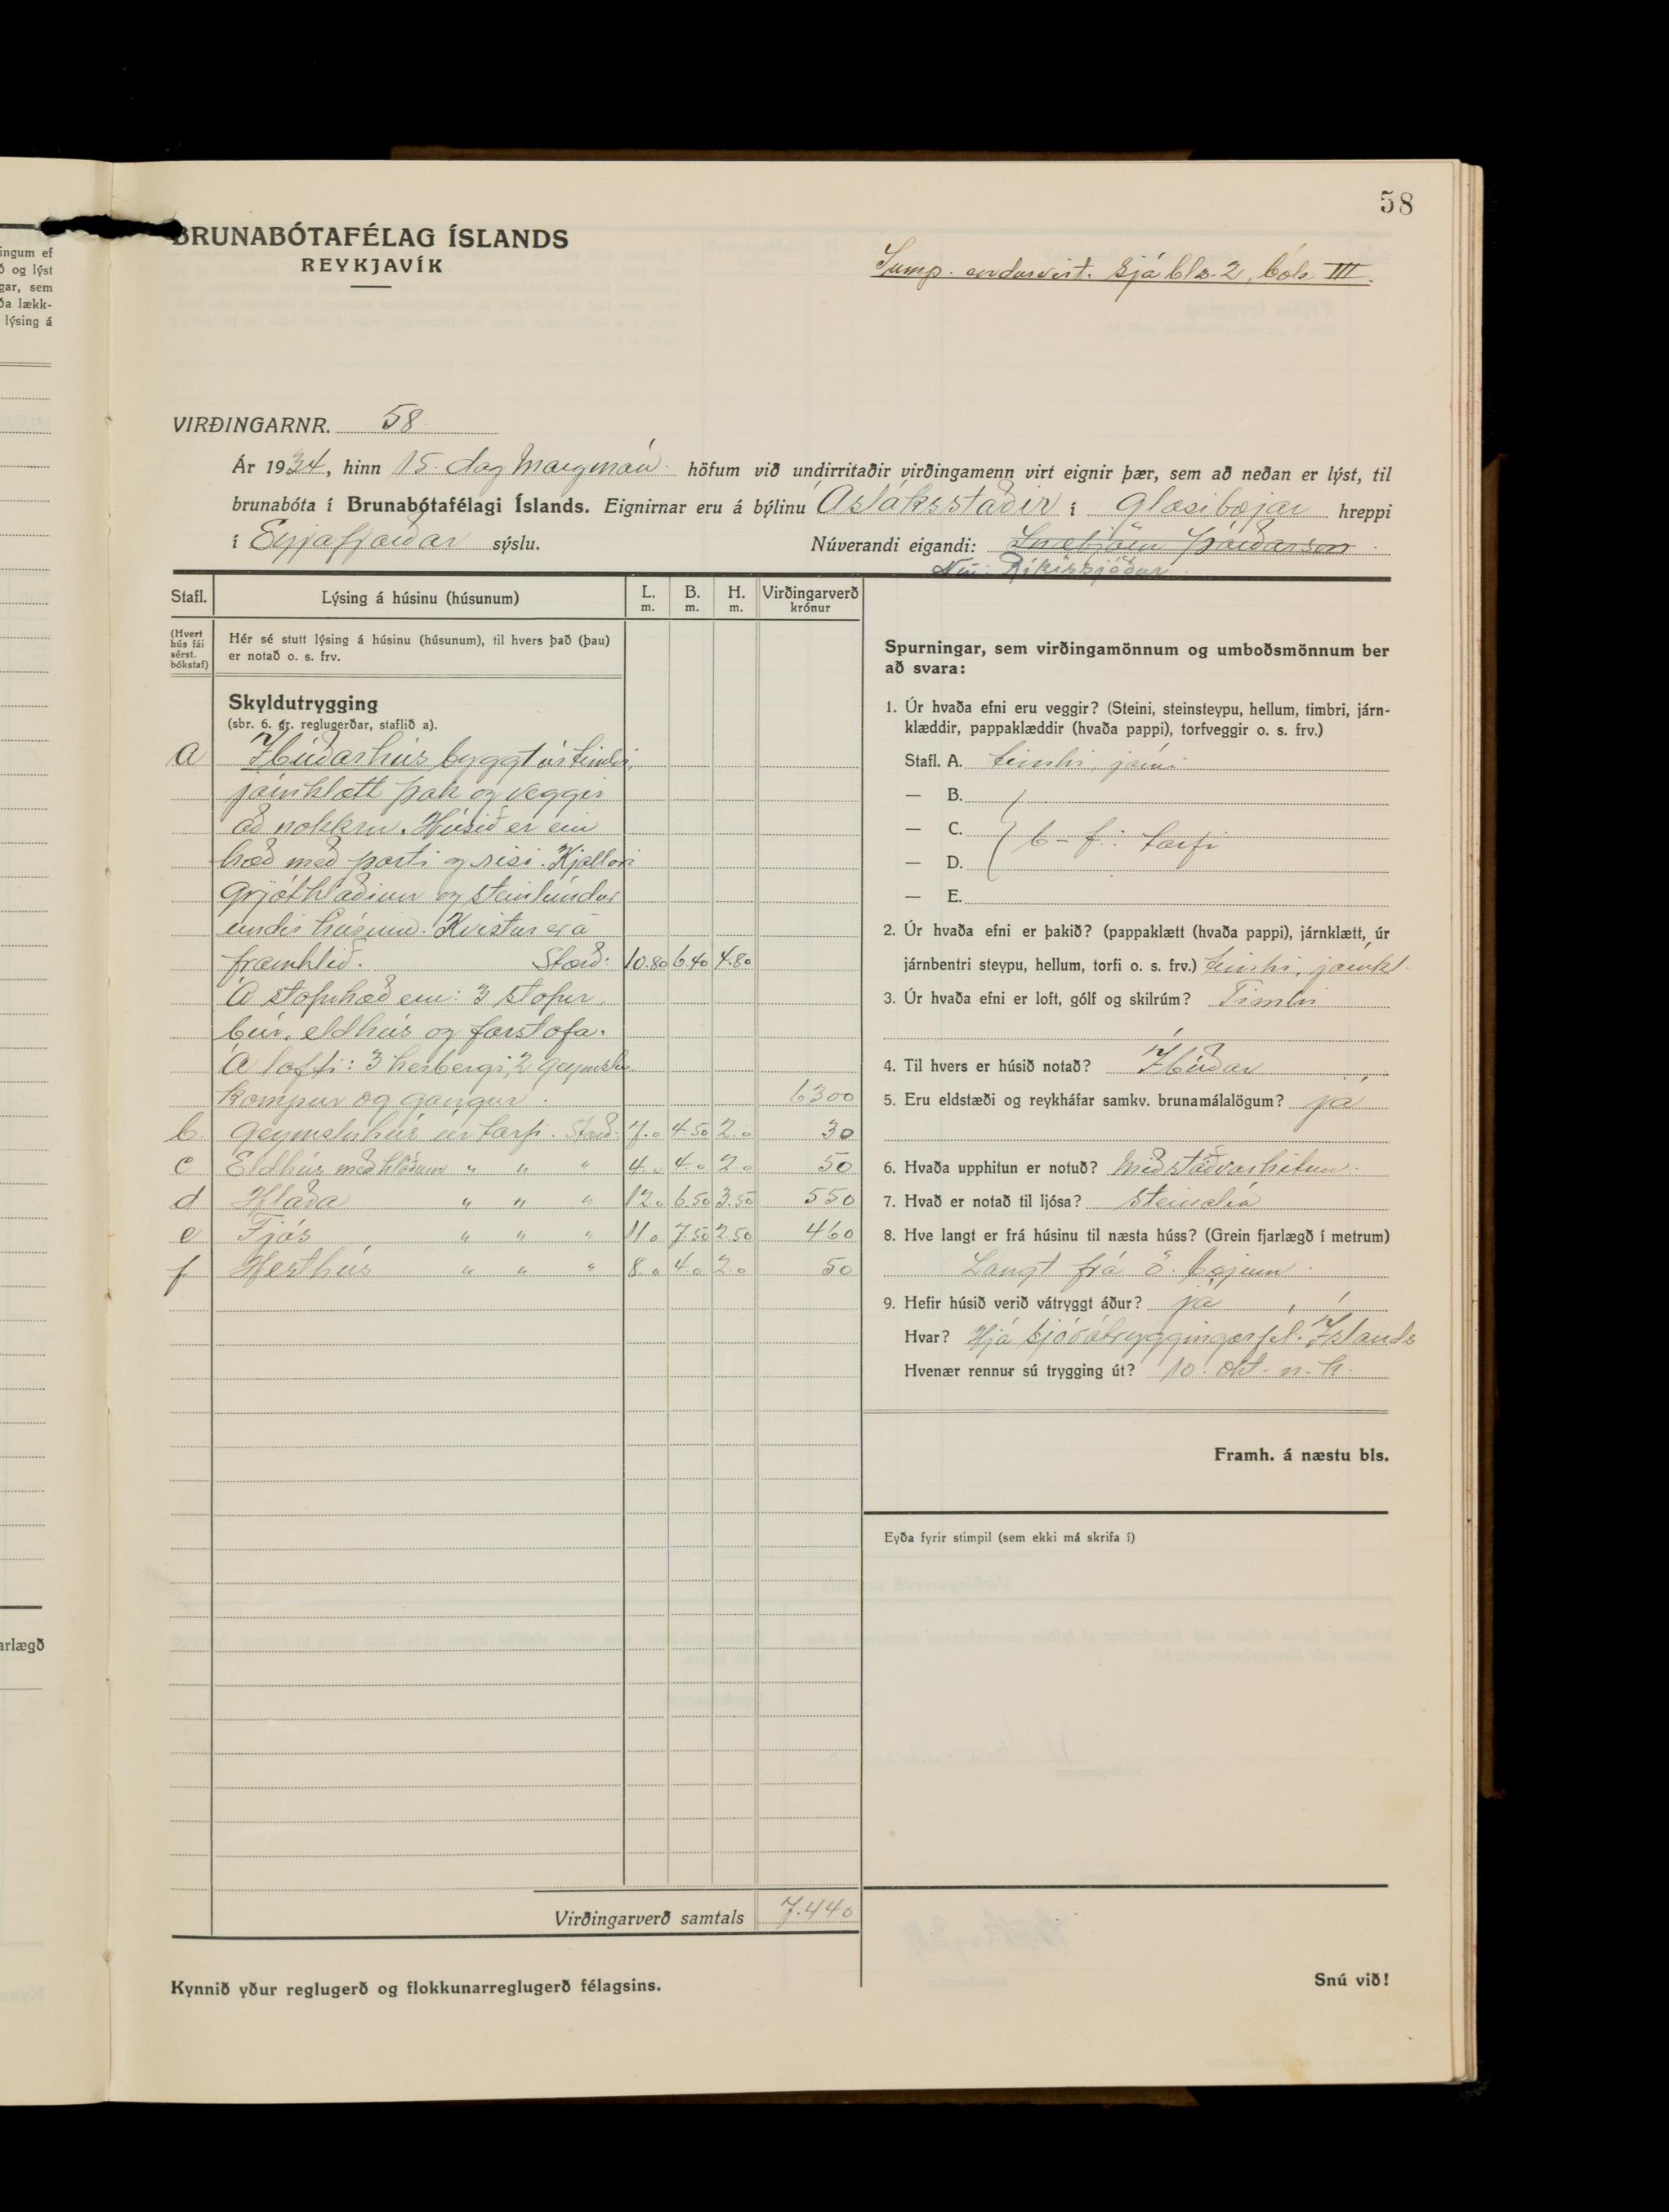 58
BRUNABÓTAFÉLAG ÍSLANDS
REYKJAVÍK
Sump. endurvirt. sjá bls. 2, bók III.
VIRÐINGARNR. 58
Ár 1934, hinn 15. dag höfum við undirritaðir virðingamenn virt eignir þær, sem að neðan er lýst, til
brunabóta í Brunabótafélagi Íslands. Eignirnar eru á býlinu Ásláksstaðir í Glæsibæjar hreppi
í Eyjafjarðar sýslu. Núverandi eigandi: Snæbjörn Þórðarson
Nú: Ríkissjóður
Stafl. Lýsing á húsinu (húsunum) L. m. B. m. H. m. Virðingarverð krónur
(Hvert hús fái sérst. bókstaf)
Hér sé stutt lýsing á húsinu (húsunum), til hvers það (þau)
er notað o. s. frv.
Skyldutrygging
(sbr. 6. gr. reglugerðar, staflið a).
a Íbúðarhús byggt úr timbri,
járnklætt þak og veggir
að nokkru. Húsið er ein
hæð með porti og risi. Kjallari
grjóthlaðinn og steinlímdur
undir húsinu. Kvistur er á
framhlið. Stærð: 10.80 6.40 4.80
Á stofuhæð eru: 3 stofur,
búr, eldhús og forstofa.
Á lofti: 3 herbergi, 2 geymslu
kompur og gangur. 6300
b. Geymsluhús úr torfi. Stærð: 7.0 4.50 2.0 30
c Eldhús með hlóðum " " " 4.0 4.0 2.0 50
d Hlaða " " " 12.0 6.50 3.50 550
e Fjós " " " 11.0 7.50 2.50 460
f Hesthús " " " 8.0 4.0 2.0 50
Virðingarverð samtals 7.440
Kynnið yður reglugerð og flokkunarreglugerð félagsins.
Spurningar, sem virðingamönnum og umboðsmönnum ber
að svara:
1. Úr hvaða efni eru veggir? (Steini, steinsteypu, hellum, timbri, járn-
klæddir, pappaklæddir (hvaða pappi), torfveggir o. s. frv.)
Stafl. A. timbri, járni
— B.
— C. b – f: torfi
— D.
— E.
2. Úr hvaða efni er þakið? (pappaklætt (hvaða pappi), járnklætt, úr
járnbentri steypu, hellum, torfi o. s. frv.) timbri, járnkl.
3. Úr hvaða efni er loft, gólf og skilrúm? Timbri
4. Til hvers er húsið notað? Íbúðar
5. Eru eldstæði og reykháfar samkv. brunamálalögum? já
6. Hvaða upphitun er notuð? Miðstöðvarhitun.
7. Hvað er notað til ljósa? steinolía
8. Hve langt er frá húsinu til næsta húss? (Grein fjarlægð í metrum)
Langt frá ö. bæjum.
9. Hefir húsið verið vátryggt áður? já
Hvar? Hjá Sjóvátryggingarfel. Íslands
Hvenær rennur sú trygging út? 10. okt. n. k.
Framh. á næstu bls.
Eyða fyrir stimpil (sem ekki má skrifa í)
Snú við!
ingum ef
ð og lýst
gar, sem
ða lækk-
lýsing á
arlægð